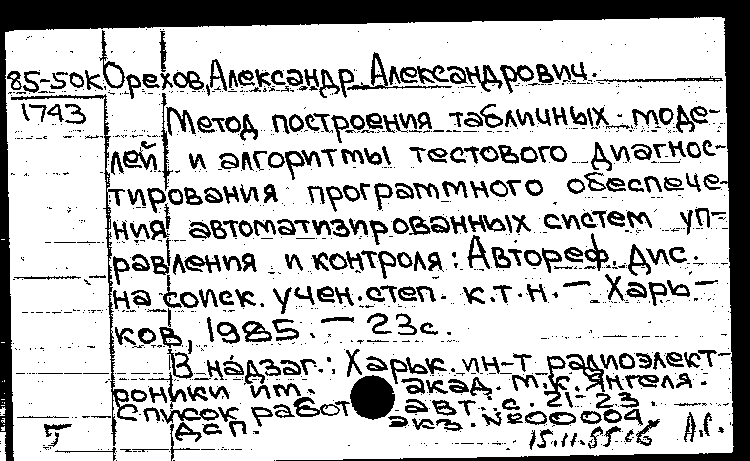 85-50к Орехов, Александр Александрович.
1743
Метод построения табличных моде-
лей и алгоритмы тестового диагнос-
тирования программного обеспече-
ния автоматизированных систем уп-
равления и контроля: Автореф. дис.
на соиск. учен. степ. к.т.н. — Харь-
ков, 1985. — 23с.
В надзаг.: Харьк. ин-т радиоэлект-
роники им. акад. М.К. Янгеля.
Список работ авт.: с. 21-23.
ДСП. Экз. №000004
5 15.11.85 А.С.